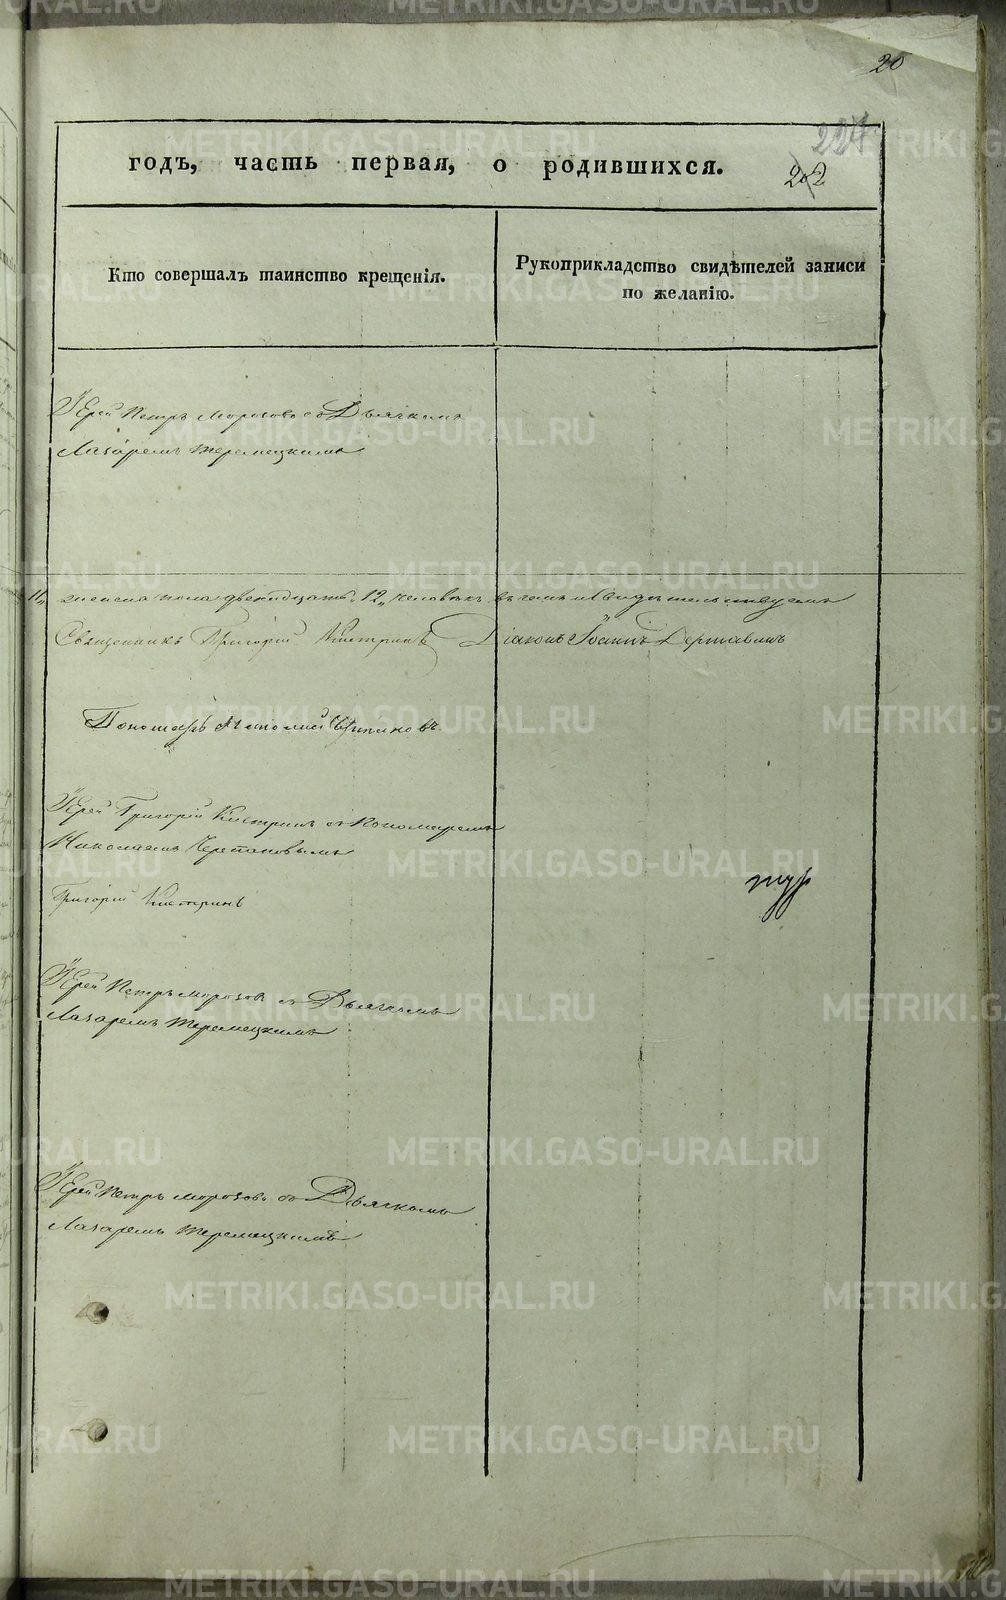 20
227
202
годъ, часть первая, о родившихся.
Кто совершалъ таинство крещенія.
Рукоприкладство свидѣтелей записи
по желанію.
Іерей Петръ Морозовъ съ Дьячкомъ
Лазаремъ
женска пола двенадцать 12, человѣкъ въ чемъ и свидѣтельствуемъ
Священникъ Григорій Діаконъ Іоаннъ Державинъ
Пономарь Николай Черепановъ
Іерей Григорій съ Пономаремъ
Николаемъ Черепановымъ
Григорій
Іерей Петръ Морозовъ съ Дьячкомъ
Лазаремъ
Іерей Петръ Морозовъ съ Дьячкомъ
Лазаремъ
METRIKI.GASO-URAL.RU